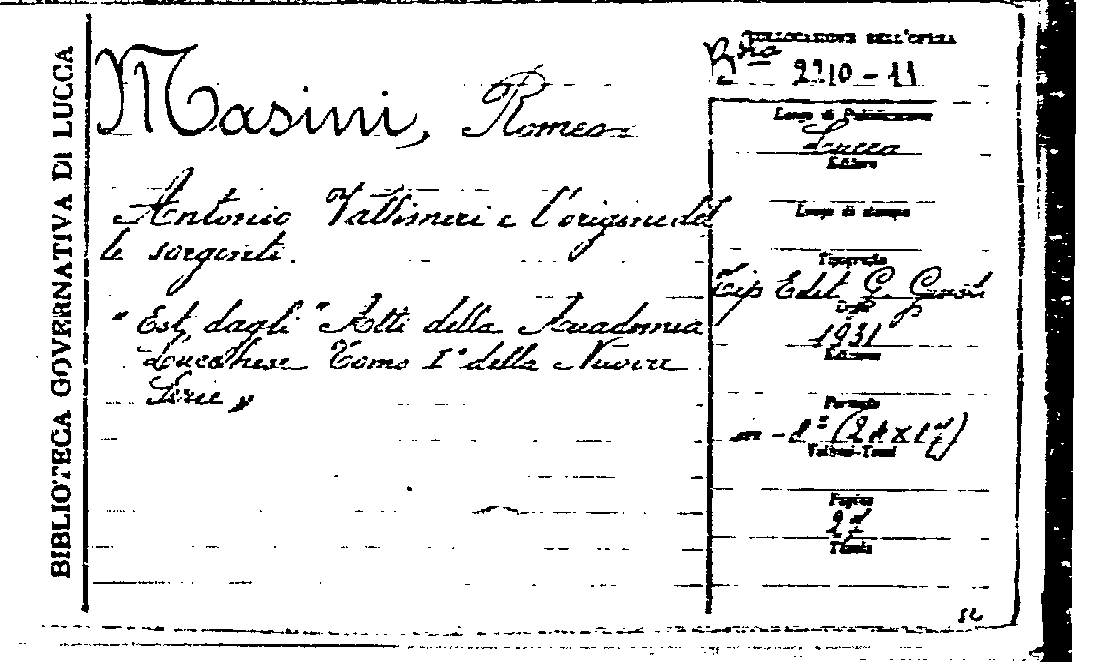 BIBLIOTECA GOVERNATIVA DI LUCCA
Masini, Romeo
Antonio Vallisneri e l'origine del
le sorgenti.
"Est. dagli "Atti della Accademia
Lucchese Tomo I° della Nuova
Serie"
COLLOCAZIONE DELL'OPERA
2210-11
Luogo di Pubblicazione
Lucca
Editore
Luogo di stampa
Tipografia
Tip Edit G. Giusti
Data
1931
Edizione
Formato
in-8° (24x17)
Volumi-Tomi
Pagine
27